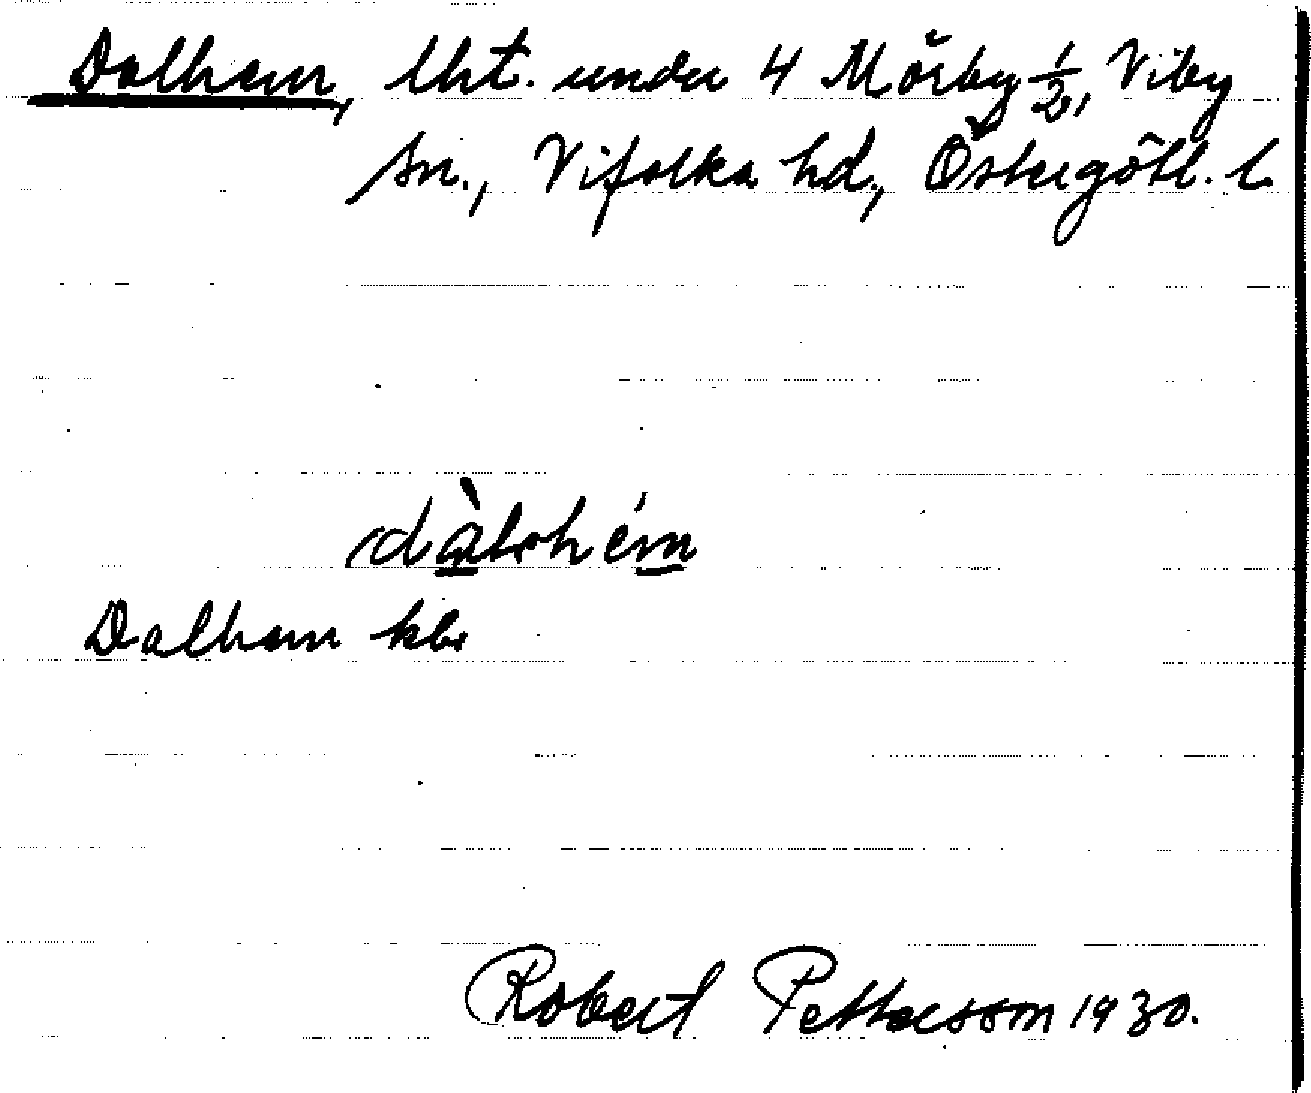 Dalhem, lht. under 4 Mörby 1/2, Viby
sn., Vifolka hd, Östergötl. l.
dàlhém
Dalhem kbr
Robert Pettersson 1930.